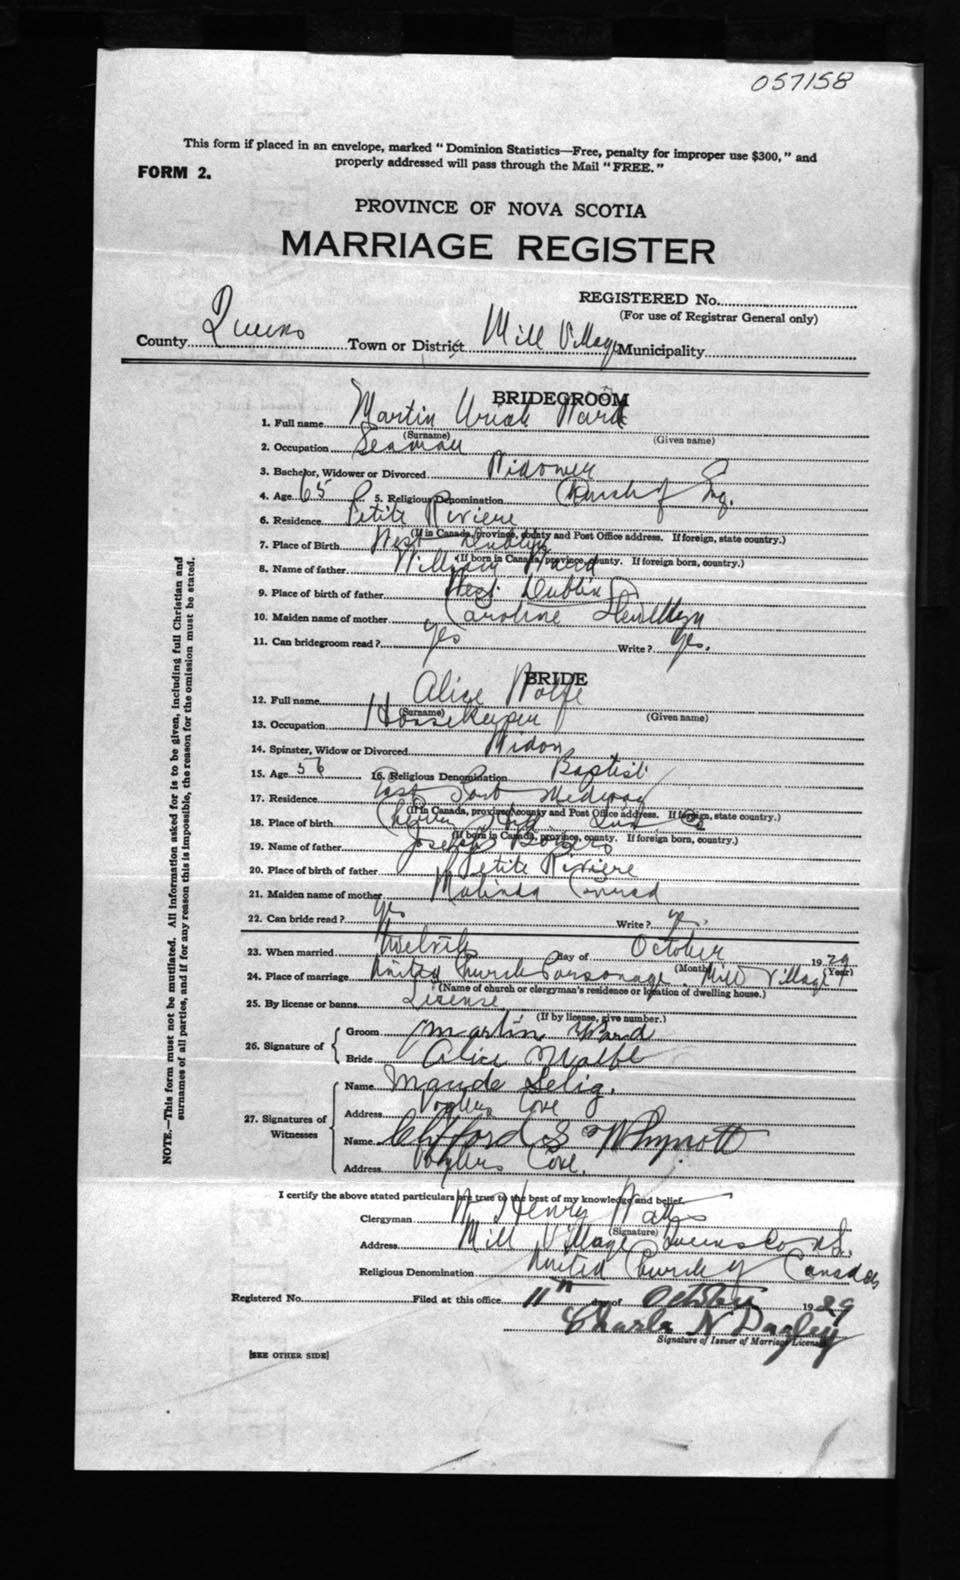 057158
This form if placed in an envelope, marked "Dominion Statistics—Free, penalty for improper use $300," and
properly addressed will pass through the Mail "FREE."
FORM 2.
PROVINCE OF NOVA SCOTIA
MARRIAGE REGISTER
REGISTERED No.
(For use of Registrar General only)
County Queens Town or District Mill Village Municipality
BRIDEGROOM
1. Full name Martin Uriah Ward
(Surname) (Given name)
2. Occupation Seaman
3. Bachelor, Widower or Divorced Widower
4. Age 65 5. Religious Denomination Church of Eng.
6. Residence Petite Riviere
(If in Canada, province, county and Post Office address. If foreign, state country.)
7. Place of Birth West Dublin
(If born in Canada, province, county. If foreign born, country.)
8. Name of father William Ward
9. Place of birth of father West Dublin
10. Maiden name of mother Caroline
11. Can bridegroom read? yes Write? yes.
BRIDE
12. Full name Alice Wolfe
(Surname) (Given name)
13. Occupation Housekeeper
14. Spinster, Widow or Divorced Widow
15. Age 56 16. Religious Denomination Baptist
17. Residence East Port Medway
(If in Canada, province, county and Post Office address. If foreign, state country.)
18. Place of birth Cherry Hill
(If born in Canada, province, county. If foreign born, country.)
19. Name of father Joseph
20. Place of birth of father Petite Riviere
21. Maiden name of mother Malinda Conrad
22. Can bride read? yes Write? yes.
23. When married Twelvth day of October 1929
(Month) (Year)
24. Place of marriage United Church Parsonage, Mill Village
(Name of church or clergyman's residence or location of dwelling house.)
25. By license or banns Lisense
(If by license, give number.)
26. Signature of
Groom Martin Ward
Bride Alice Wolfe
27. Signatures of Witnesses
Name Maude Selig.
Address Voglers Cove
Name Clifford S Whynott
Address Voglers Cove.
I certify the above stated particulars are true to the best of my knowledge and belief.
Clergyman W Henry Watts
(Signature)
Address Mill Village Queens Co N.S.
Religious Denomination United Church of Canada
Registered No. Filed at this office 11th day of October 1929
Charles N Dagley
Signature of Issuer of Marriage License
[SEE OTHER SIDE]
NOTE.—This form must not be mutilated. All information asked for is to be given, including full Christian and
surnames of all parties, and if for any reason this is impossible, the reason for the omission must be stated.